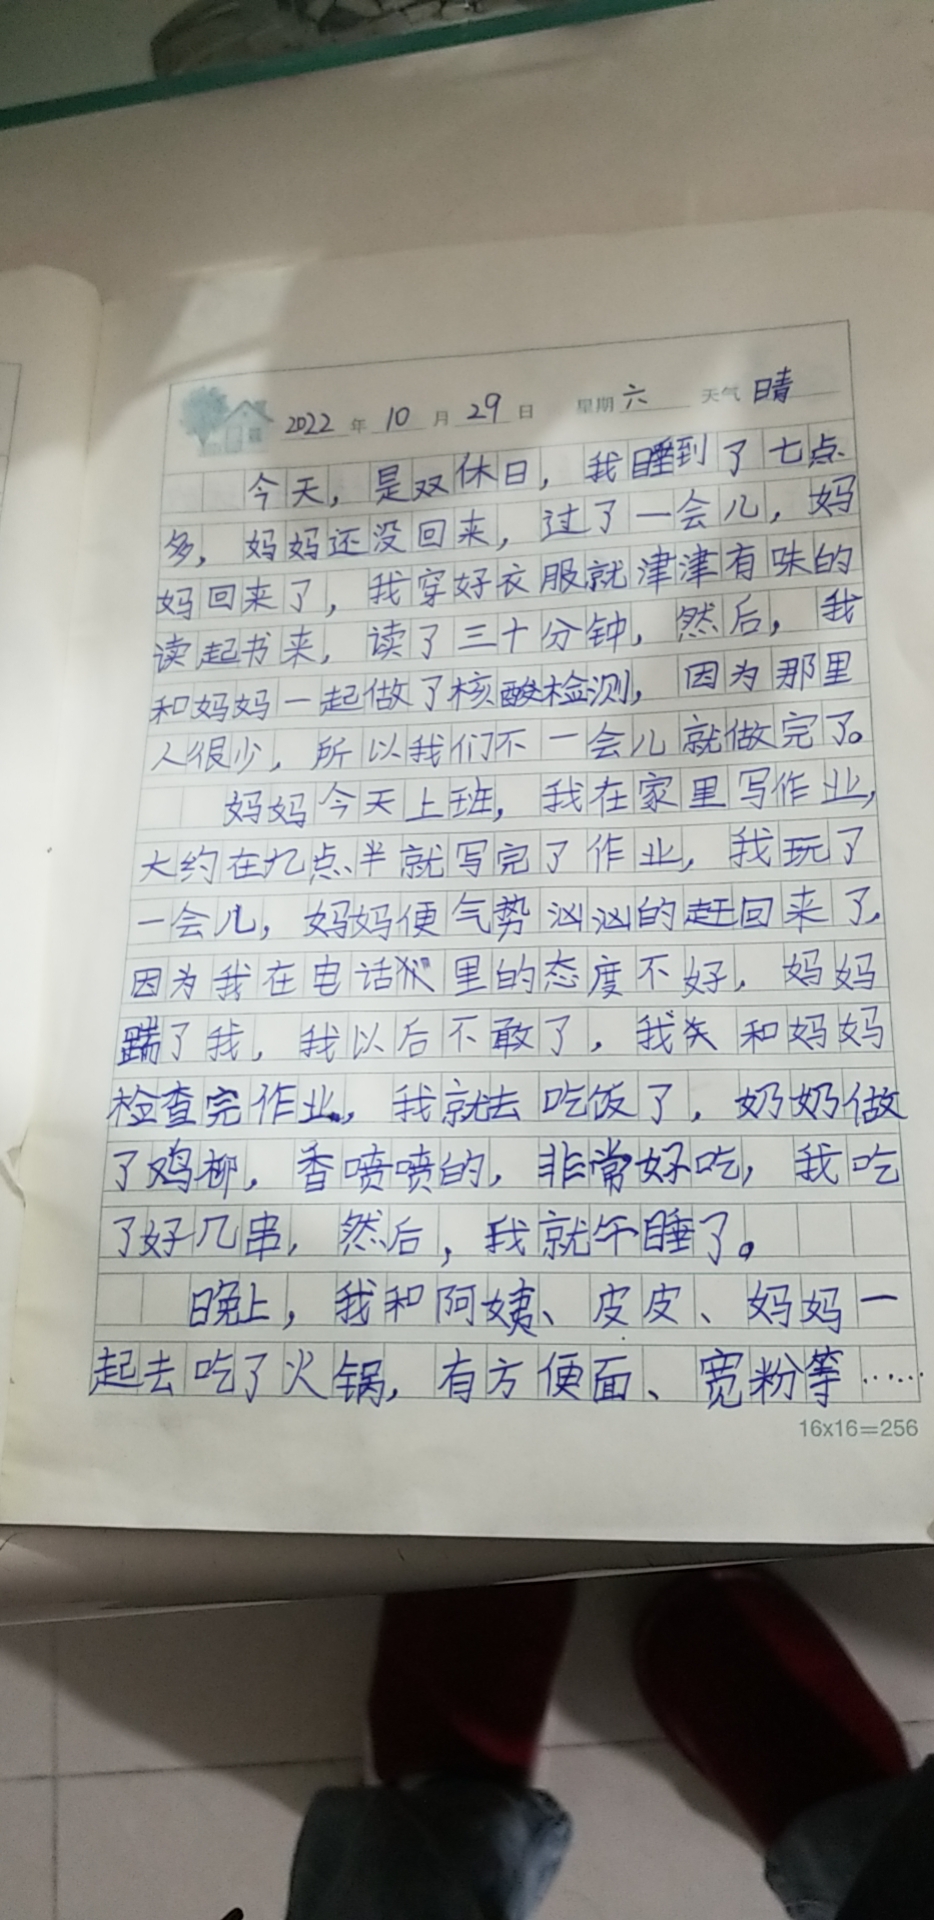 2022年10月29日 星期六 天气晴
今天，是双休日，我睡到了七点
多，妈妈还没回来，过了一会儿，妈
妈回来了，我穿好衣服就津津有味的
读起书来，读了三十分钟，然后，我
和妈妈一起做了核酸检测，因为那里
人很少，所以我们不一会儿就做完了。
妈妈今天上班，我在家里写作业，
大约在九点半就写完了作业，我玩了
一会儿，妈妈便气势汹汹的赶回来了，
因为我在电话里的态度不好，妈妈
踹了我，我以后不敢了，我 和妈妈
检查完作业，我就去吃饭了，奶奶做
了鸡柳，香喷喷的，非常好吃，我吃
了好几串，然后，我就午睡了。
晚上，我和阿姨、皮皮、妈妈一
起去吃了火锅，有方便面、宽粉等……
16x16=256